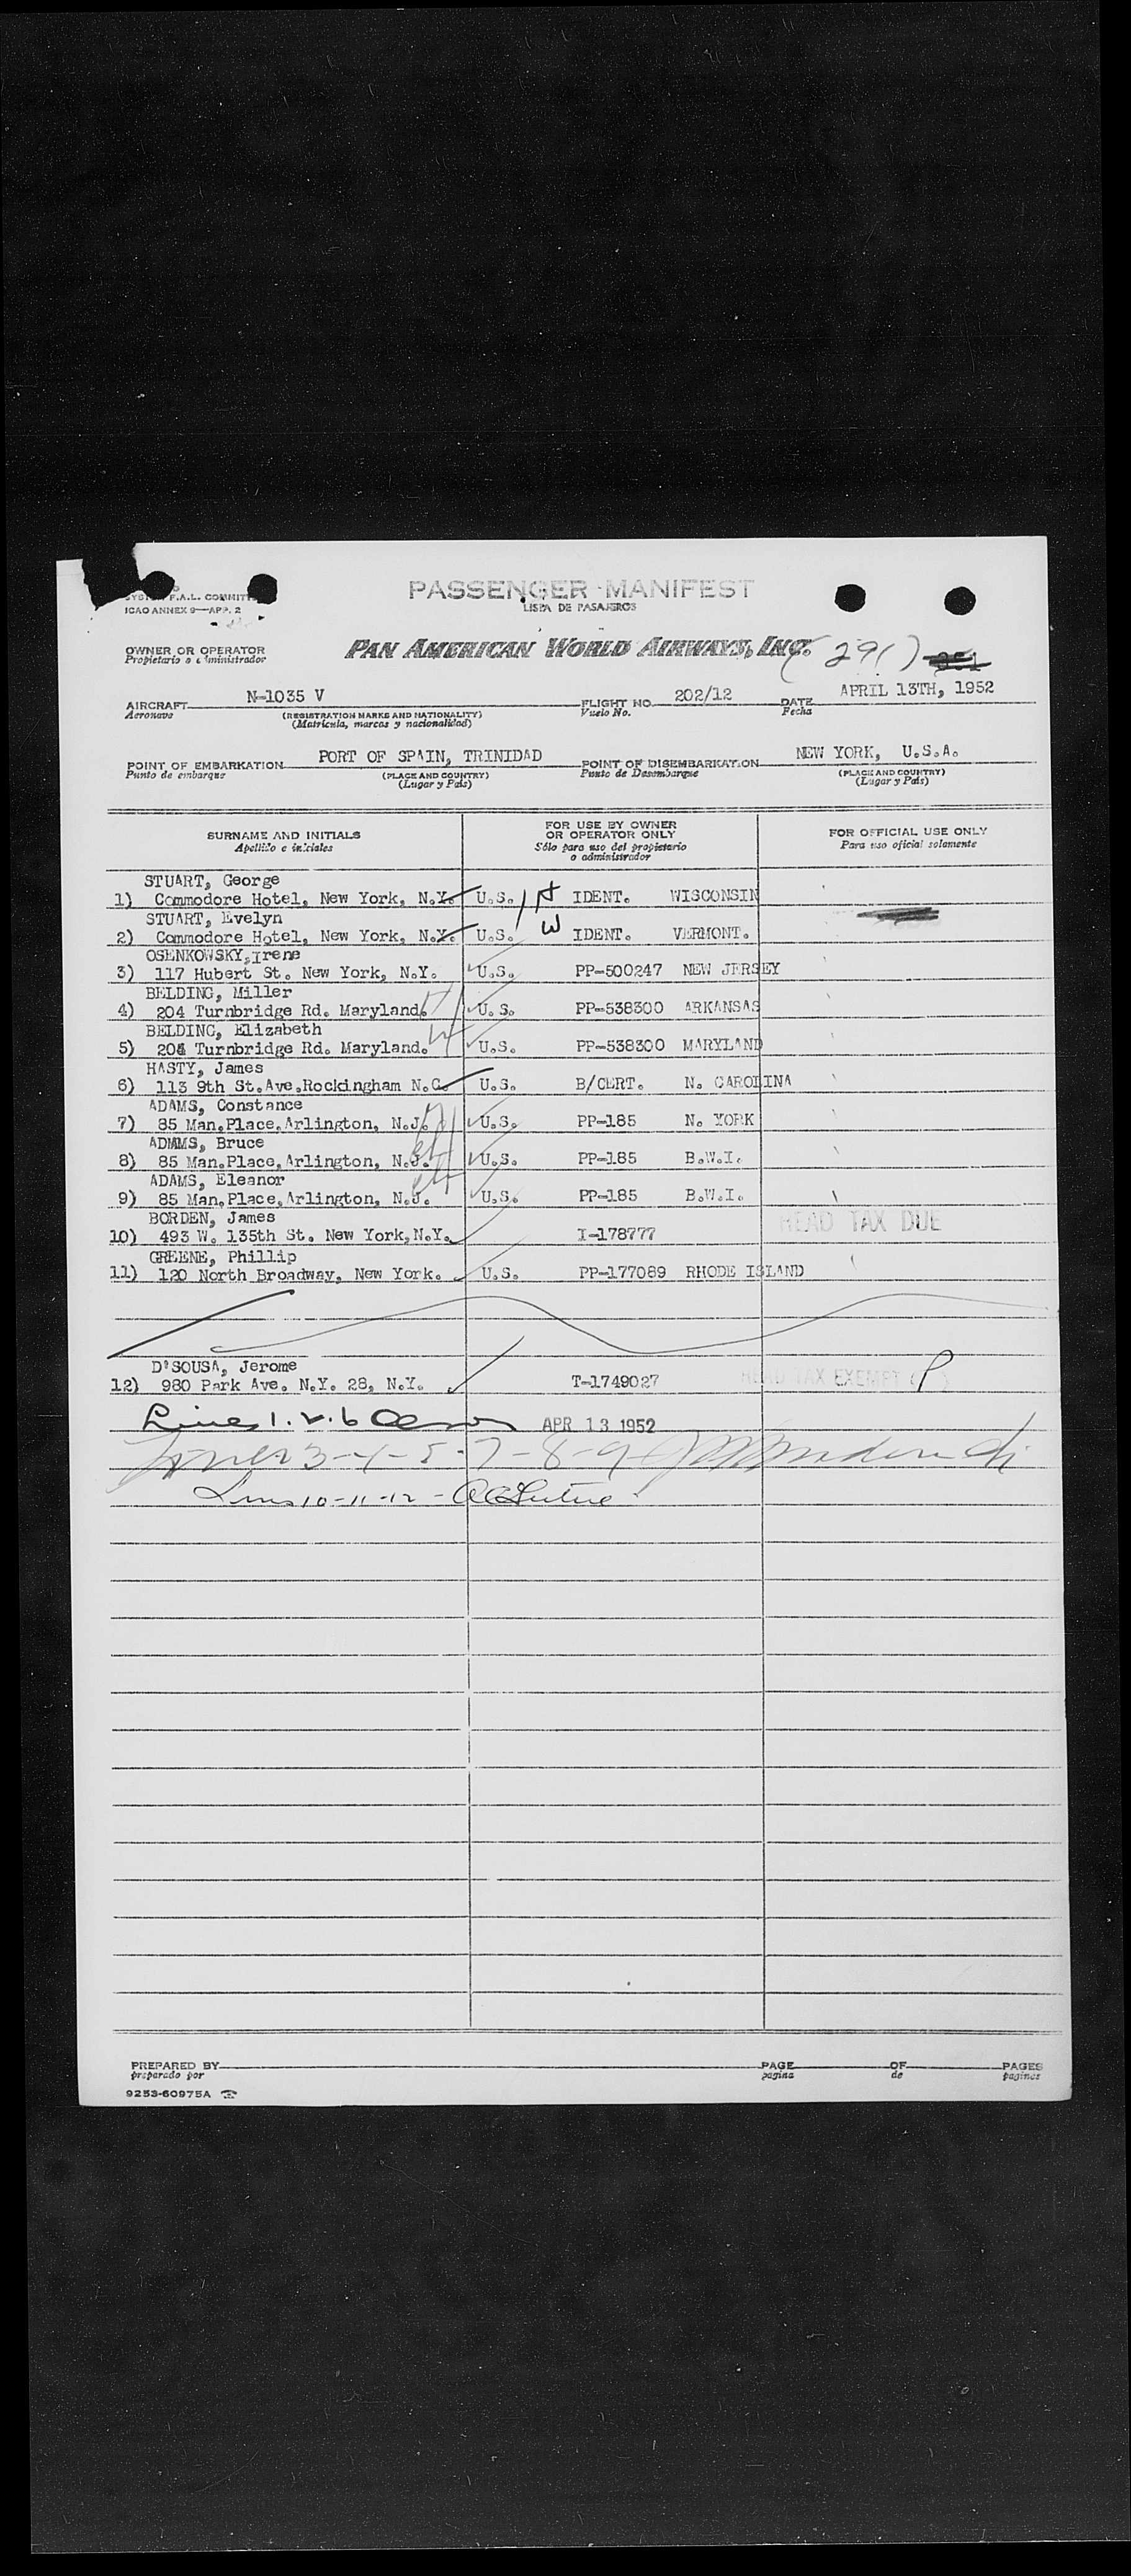 F.A.L. COMMITT
ICAO ANNEX 9—APP. 2
PASSENGER MANIFEST
LISTA DE PASAJEROS
OWNER OR OPERATOR
Propietario o administrador
PAN AMERICAN WORLD AIRWAYS, INC.
(291)
AIRCRAFT N-1035 V FLIGHT NO. 202/12 DATE APRIL 13TH, 1952
Aeronave (REGISTRATION MARKS AND NATIONALITY) Vuelo No. Fecha
(Matricula, marcas y nacionalidad)
POINT OF EMBARKATION PORT OF SPAIN, TRINIDAD POINT OF DISEMBARKATION NEW YORK, U.S.A.
Punto de embarque (PLACE AND COUNTRY) Punto de Desembarque (PLACE AND COUNTRY)
(Lugar y País) (Lugar y País)
SURNAME AND INITIALS FOR USE BY OWNER OR OPERATOR ONLY FOR OFFICIAL USE ONLY
Apellido e iniciales Sólo para uso del propietario o administrador Para uso oficial solamente
STUART, George
1) Commodore Hotel, New York, N.Y. U.S. H IDENT. WISCONSIN
STUART, Evelyn
2) Commodore Hotel, New York, N.Y. U.S. W IDENT. VERMONT.
OSENKOWSKY, Irene
3) 117 Hubert St. New York, N.Y. U.S. PP-500247 NEW JERSEY
BELDING, Miller
4) 204 Turnbridge Rd. Maryland. H U.S. PP-538300 ARKANSAS
BELDING, Elizabeth
5) 204 Turnbridge Rd. Maryland. W U.S. PP-538300 MARYLAND
HASTY, James
6) 113 9th St.Ave.Rockingham N.C. U.S. B/CERT. N. CAROLINA
ADAMS, Constance
7) 85 Man.Place, Arlington, N.J. U.S. PP-185 N. YORK
ADMMS, Bruce
8) 85 Man.Place, Arlington, N.J. U.S. PP-185 B.W.I.
ADAMS, Eleanor
9) 85 Man.Place, Arlington, N.J. U.S. PP-185 B.W.I.
BORDEN, James
10) 493 W. 135th St. New York, N.Y. I-178777 HEAD TAX DUE
GREENE, Phillip
11) 120 North Broadway, New York. U.S. PP-177089 RHODE ISLAND
D'SOUSA, Jerome
12) 980 Park Ave. N.Y. 28, N.Y. T-1749027 HEAD TAX EXEMPT (P)
Lines 1. 2. 6 APR 13 1952
Lines 3-4-5-7-8-9
Lines 10-11-12 -
PREPARED BY PAGE OF PAGES
preparado por pagina de paginas
9253-60975A